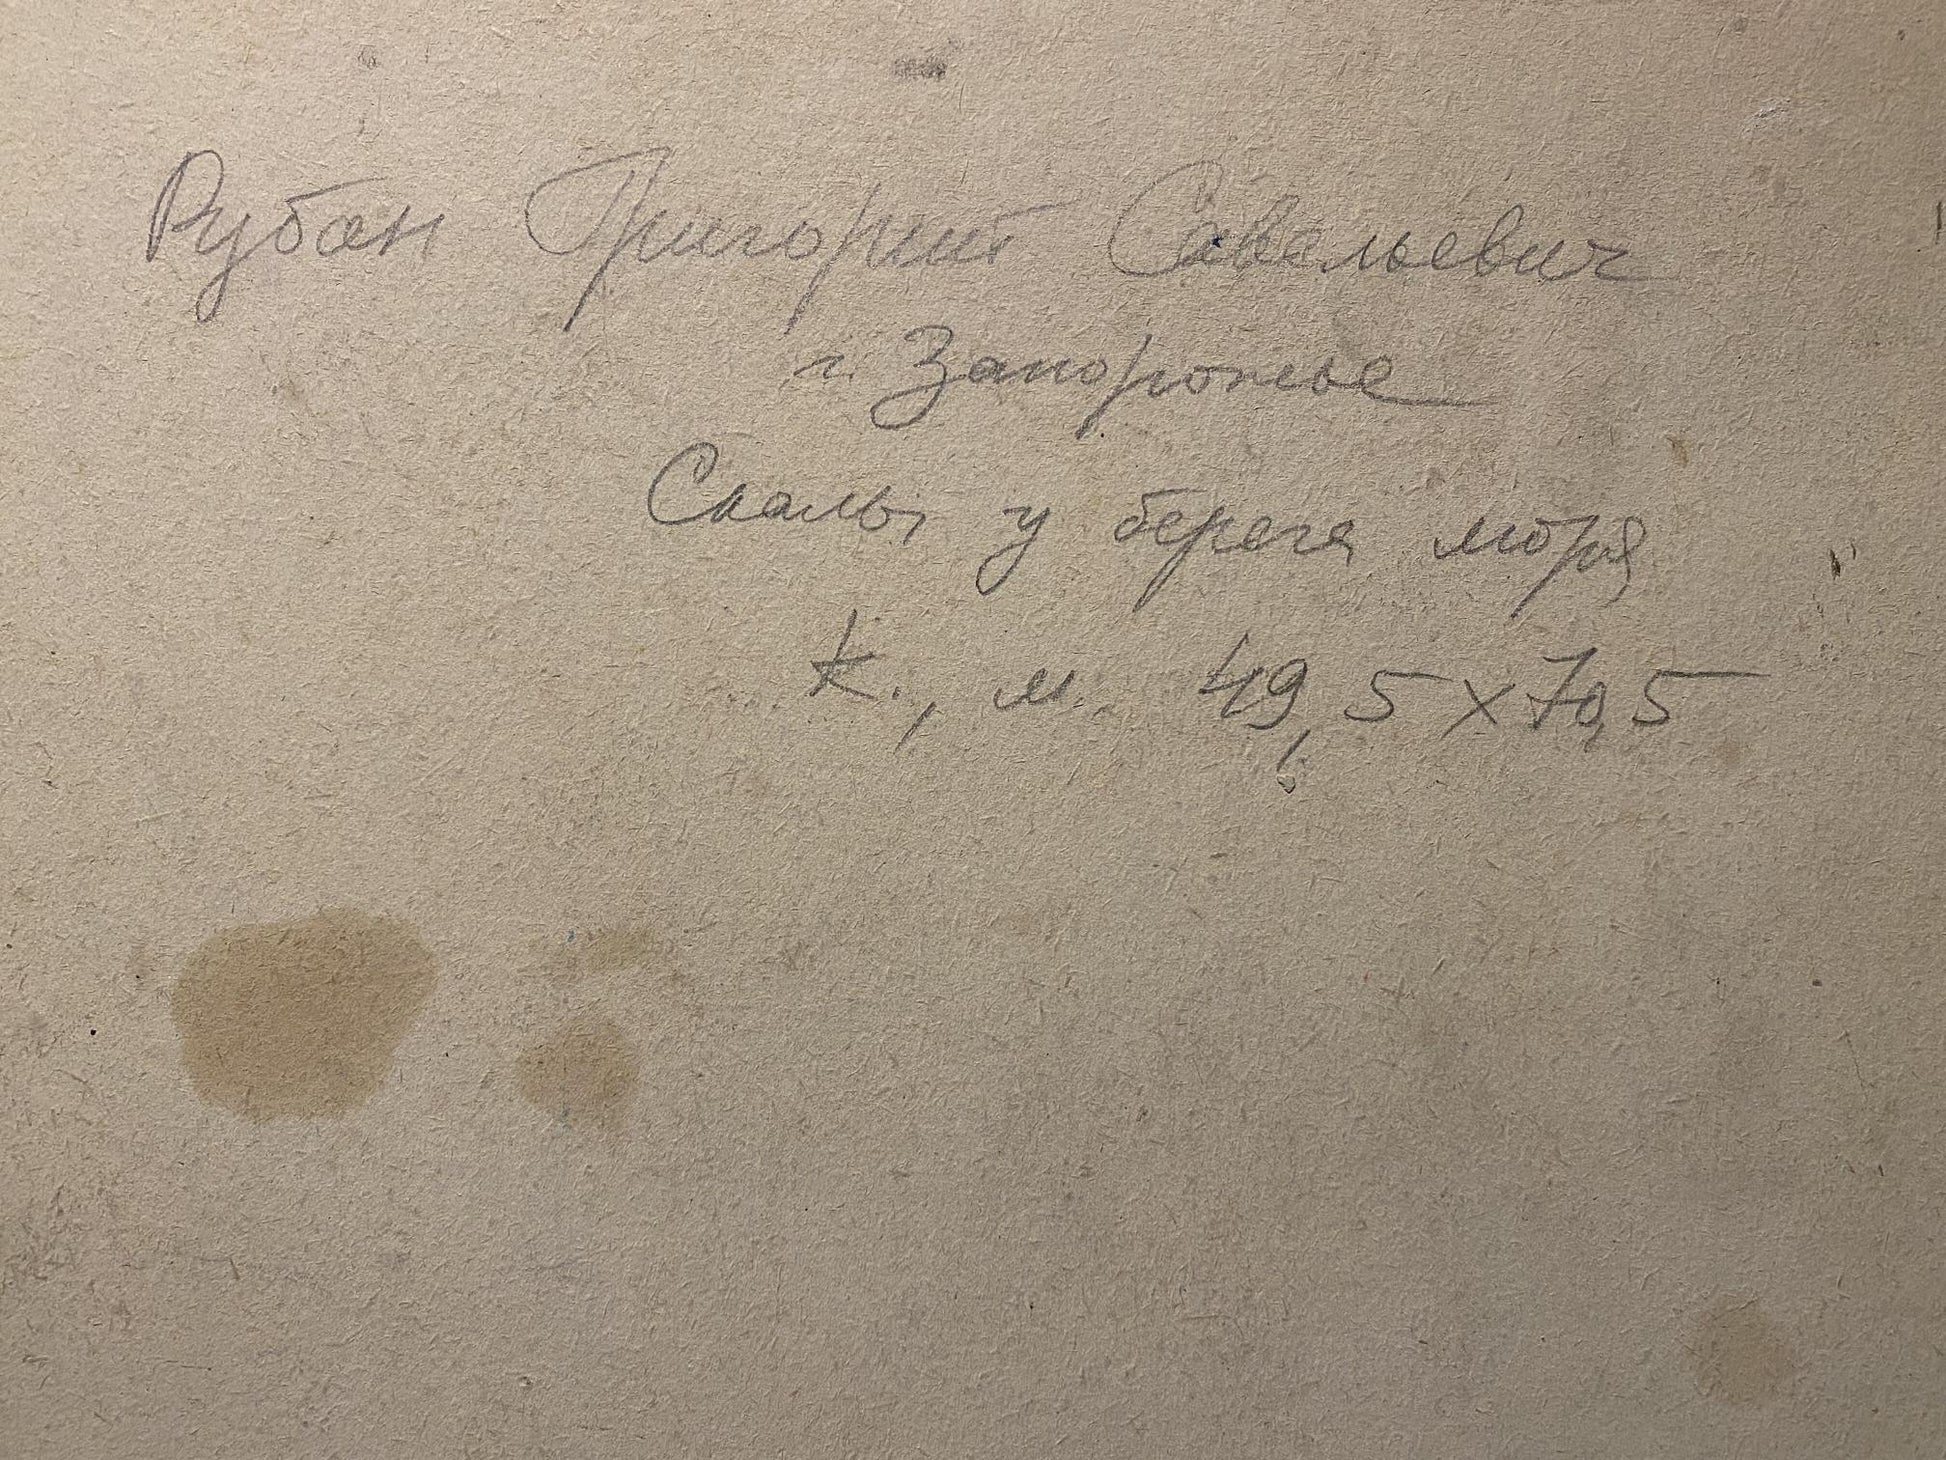 Рубан Григорий Савельевич
г. Запорожье
Скалы у берега моря
к., м. 49,5 х 70,5